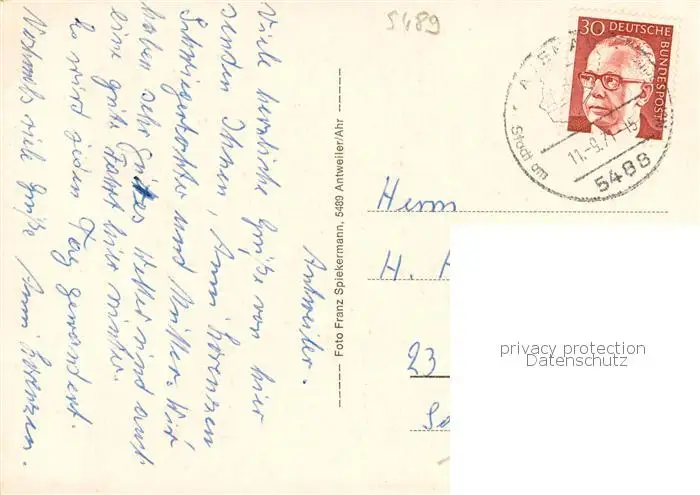 5489
Antweiler.
Viele herzliche Grüße von hier
senden Ihnen, Anni Lorenzen
Schwiegertochter und Mutter. Wir
haben sehr gutes Wetter und auch
eine gute Fahrt hier
Es wird jeden Tag gewandert.
Nochmals viele Grüße Anni Lorenzen.
Foto Franz Spiekermann, 5489 Antweiler/Ahr
30 DEUTSCHE BUNDESPOST
Stadt am
11.-9.71-15
5488
Herrn
H. A
23
privacy protection
Datenschutz